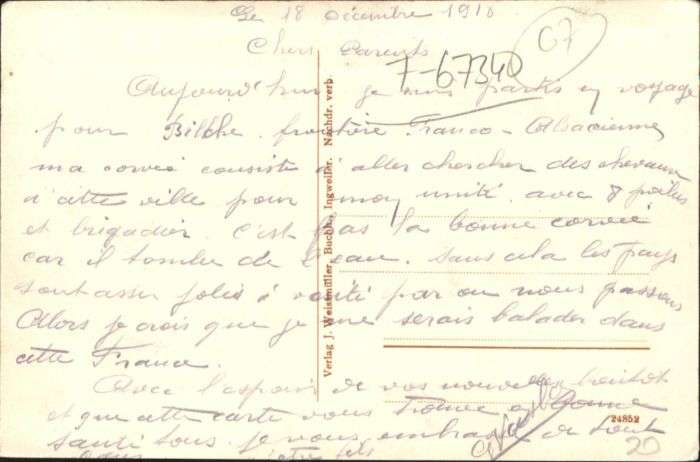 Le 18 Décembre 1918
Chers Parents
7-67340
07
Aujourd'hui je suis partis en voyage
pour Bitche frontière Franco-Alsacienne
ma corvée consiste d'aller chercher des chevaux
à cette ville pour mon unité avec 8 poilus
et brigadier c'est pas la bonne corvée
car il tombe de l'eau. Sans cela les pays
sont assez jolis à visité par ou nous passons
Alors je crois que je me serais balader dans
cette France.
Avec l'espoir de vos nouvelles bientôt
et que cette carte vous trouve en bonne
santé tous je vous embrasse de tout
votre fils
Verlag J. Weistmüller, Buchh., Ingweiler. Nachdr. verb
24852
20